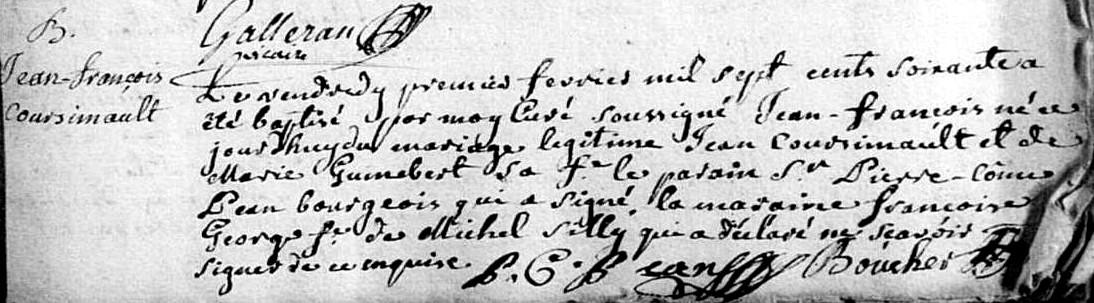 B.
Jean-françois
Coursimault
Galleran
vicaire
Le vendredy premier fevrier mil sept cents soixante a
été baptisé par moy Curé soussigné Jean-françois né ce
jourd'huy du mariage legitime Jean Coursimault et de
Marie Gumebert sa fe. le parain Sr. Pierre-Côme
Pean bourgeois qui a signé, la maraine françoise
George fe. de Michel Silly qui a déclaré ne scavoir
signer de ce enquise P. C. Pean Boucher